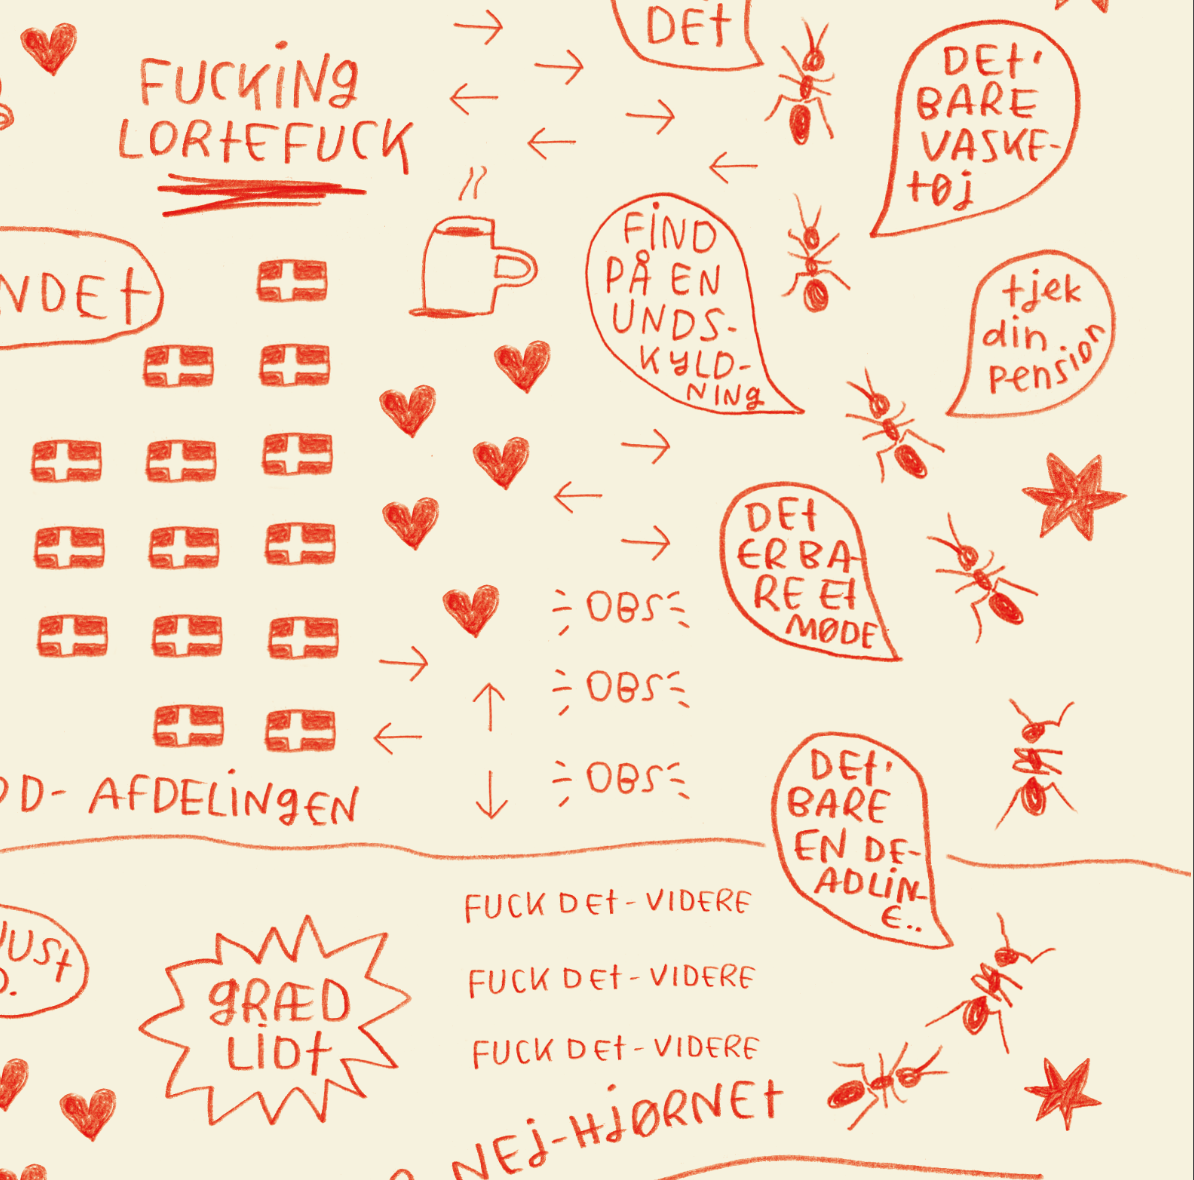 DET
FUCKING
LORTEFUCK
DET'
BARE
VASKE-
TØJ
FIND
PÅ EN
UNDS-
KYLD-
NING
NDET
tjek
din
pension
DET
ER BA-
RE ET
MØDE
OBS
OBS
OBS
D- AFDELINGEN
DET'
BARE
EN DE-
ADLIN-
E..
FUCK DET-VIDERE
FUCK DET-VIDERE
FUCK DET-VIDERE
UST
GRÆD
LIDT
NEJ-HJØRNET